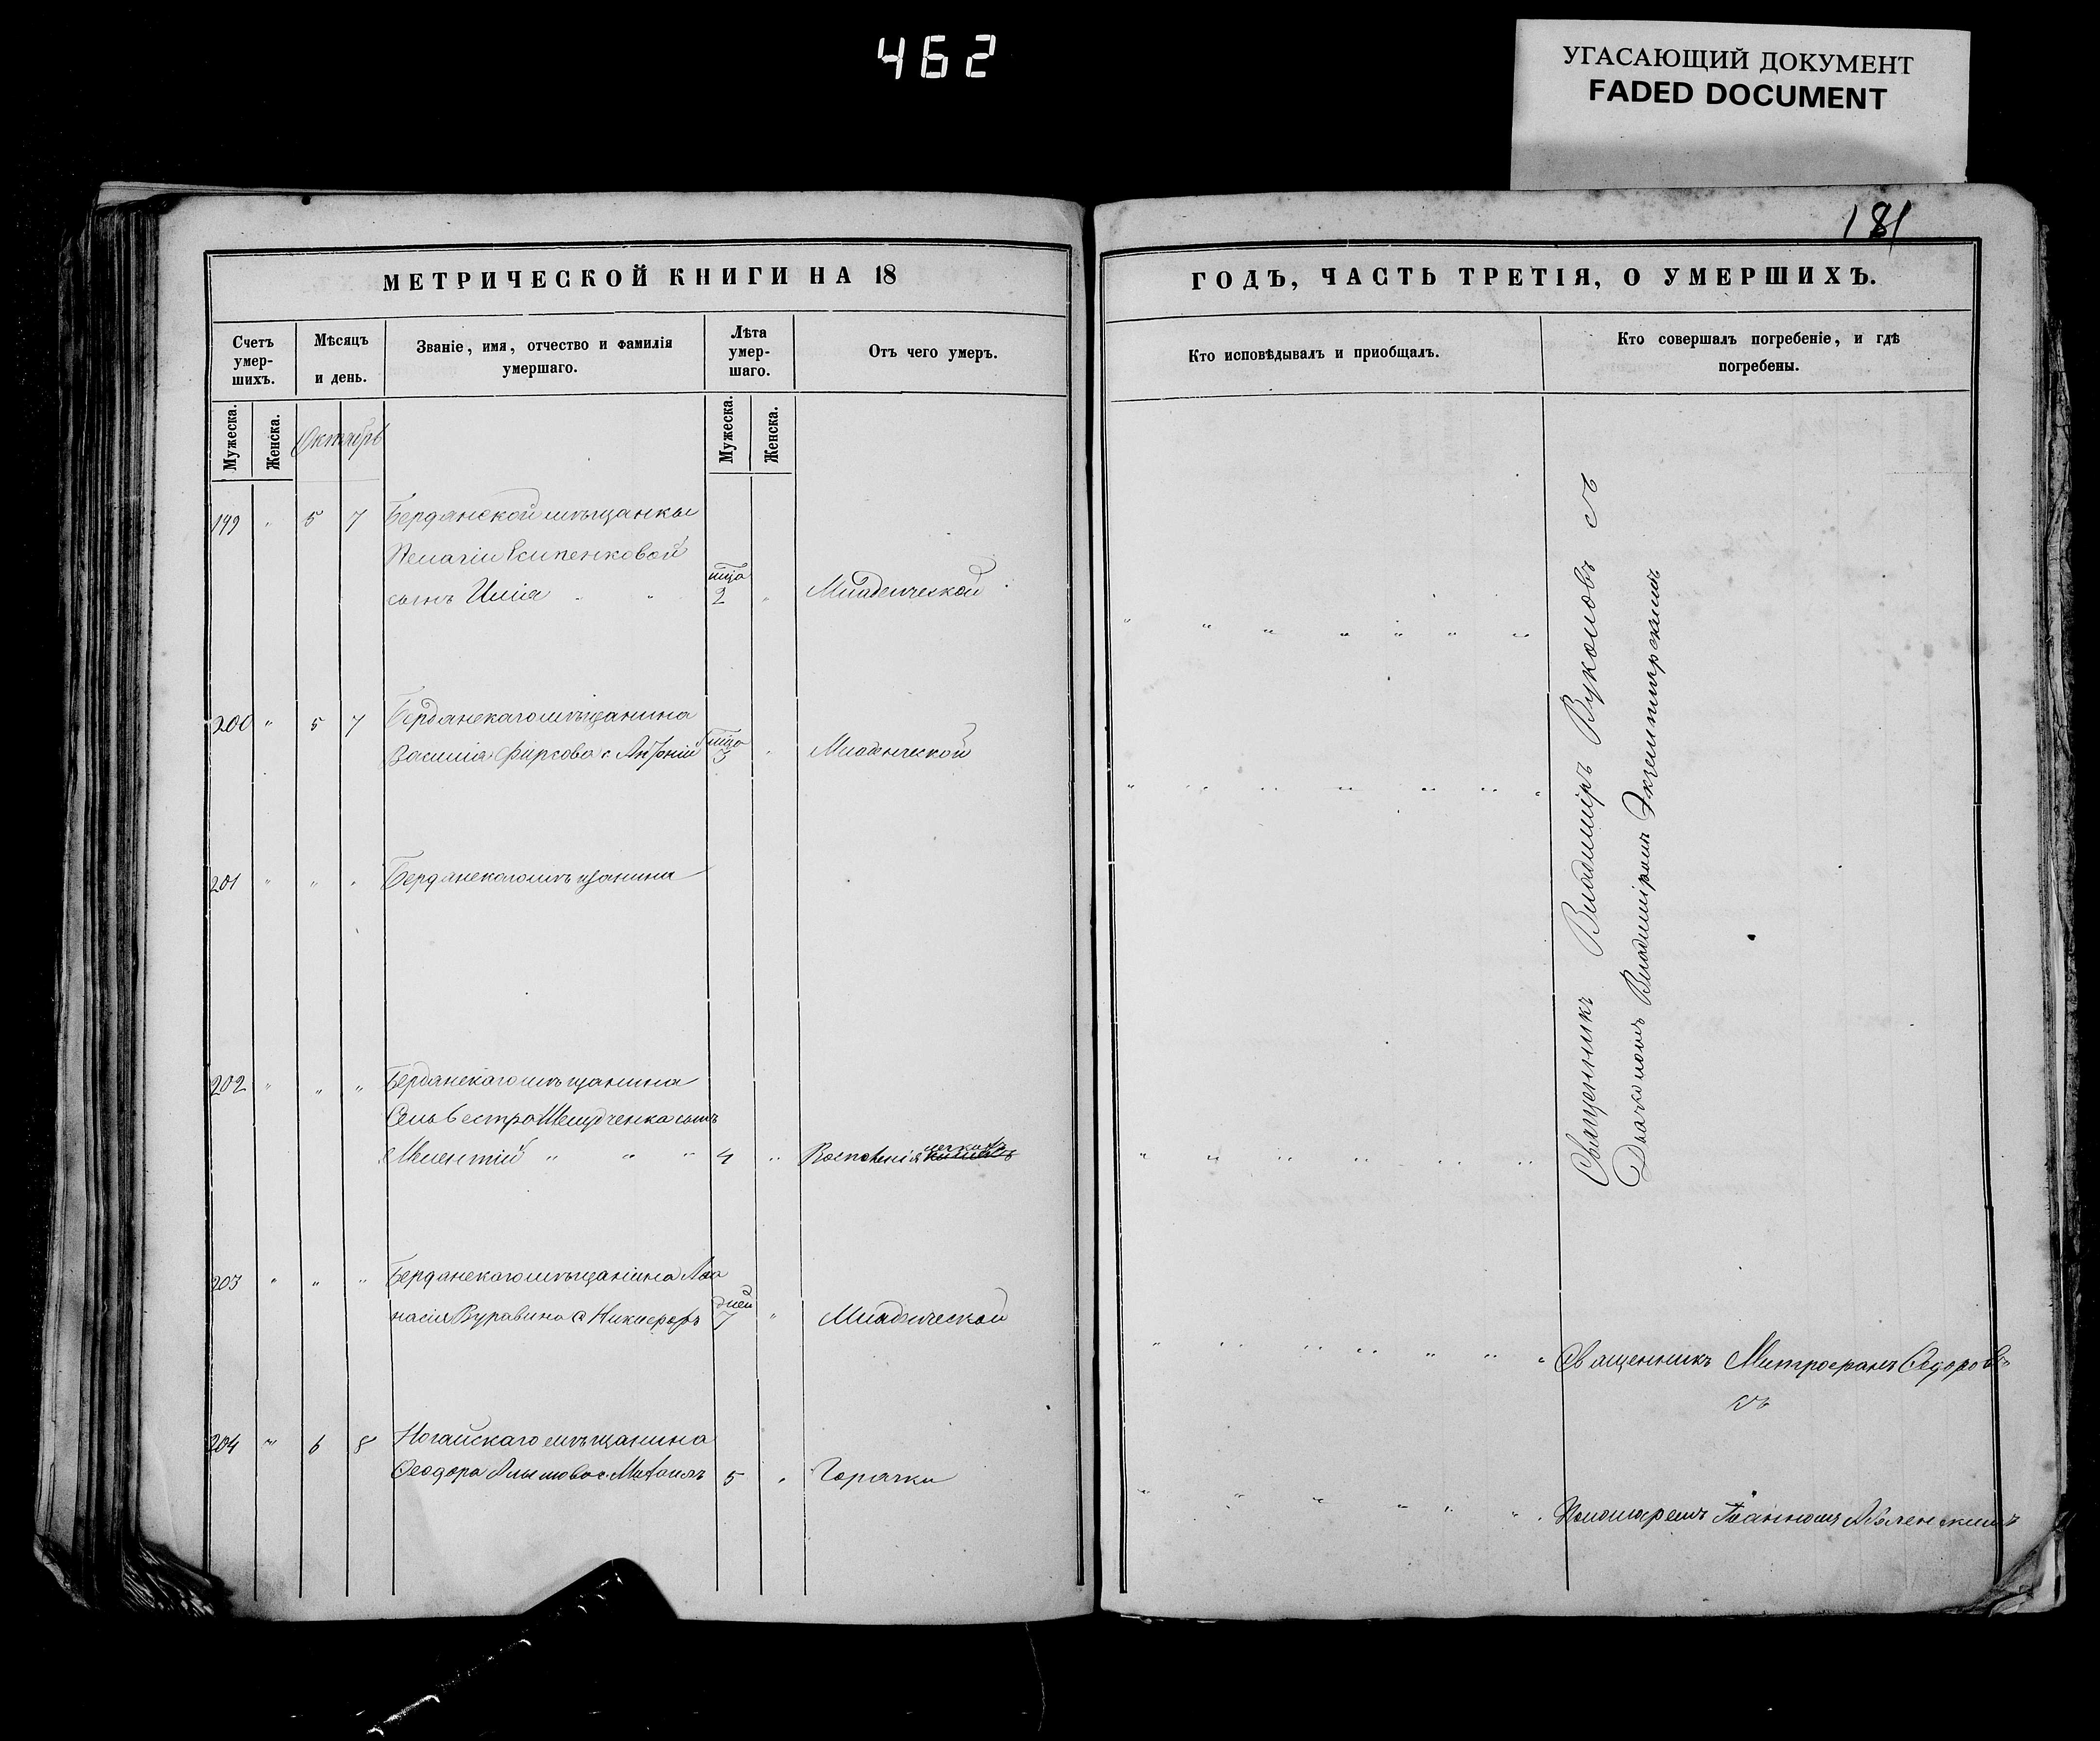 462
УГАСАЮЩИЙ ДОКУМЕНТ
FADED DOCUMENT
181
МЕТРИЧЕСКОЙ КНИГИ НА 18
ГОДЪ, ЧАСТЬ ТРЕТІЯ, О УМЕРШИХЪ.
Счетъ умер-шихъ.
Мѣсяцъ и день.
Званіе, имя, отчество и фамилія умершаго.
Лѣта умер-шаго.
Отъ чего умеръ.
Кто исповѣдывалъ и приобщалъ.
Кто совершалъ погребеніе, и гдѣ погребены.
Мужеска.
Женска.
Октябрь
Мужеска.
Женска.
199 " 5 7 Бердянской мѣщанки
Пелагіи Осипенковой
сынъ Илія " " мца 2 " Младенческой
200 " 5 7 Бердянскаго мѣщанина
Василія Фирсова с. Антоній мца 3 " Младенческой
201 " " " Бердянскаго мѣщанина
202 " " " Бердянскаго мѣщанина
Сильвестра сынъ
" " " 4 " Воспаленія
203 " " " Бердянскаго мѣщанина Афа
насія Буравина с. Никифоръ дней 7 " Младенческой
204 " 6 8 Ногайскаго мѣщанина
Ѳеодора с. Михаилъ 5 " Горячки
Священникъ Владиміръ Вуколовъ съ
Дьячкомъ Владиміромъ Экземплярскимъ
Священникъ Митрофанъ Ѳедоровъ
съ
Пономаремъ Іоанномъ